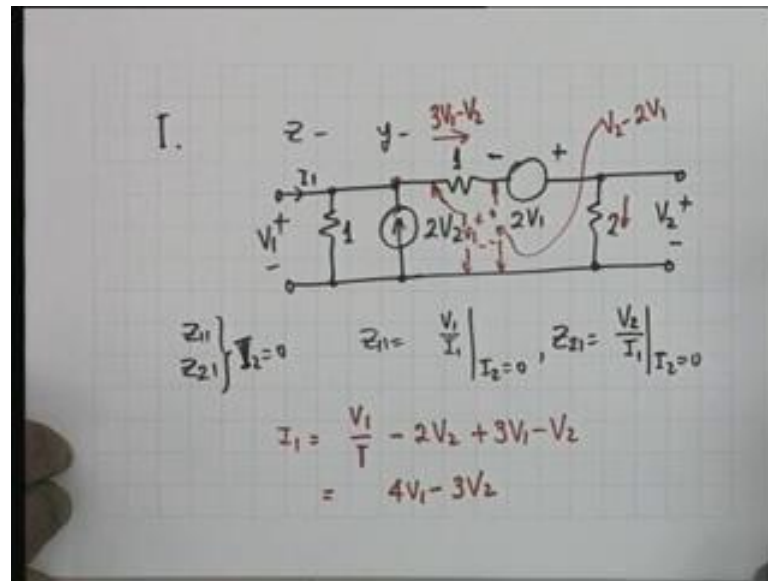 I. Z- y- 3V₁-V₂ V₂-2V₁
I₁ 1 - +
V₁ + - 1 2V₂ V₁ + - 2V₁ 2 V₂ + -
Z₁₁ Z₂₁ } I₂=0 Z₁₁= V₁/I₁ |I₂=0 , Z₂₁= V₂/I₁ |I₂=0
I₁ = V₁/1 - 2V₂ + 3V₁-V₂
= 4V₁-3V₂